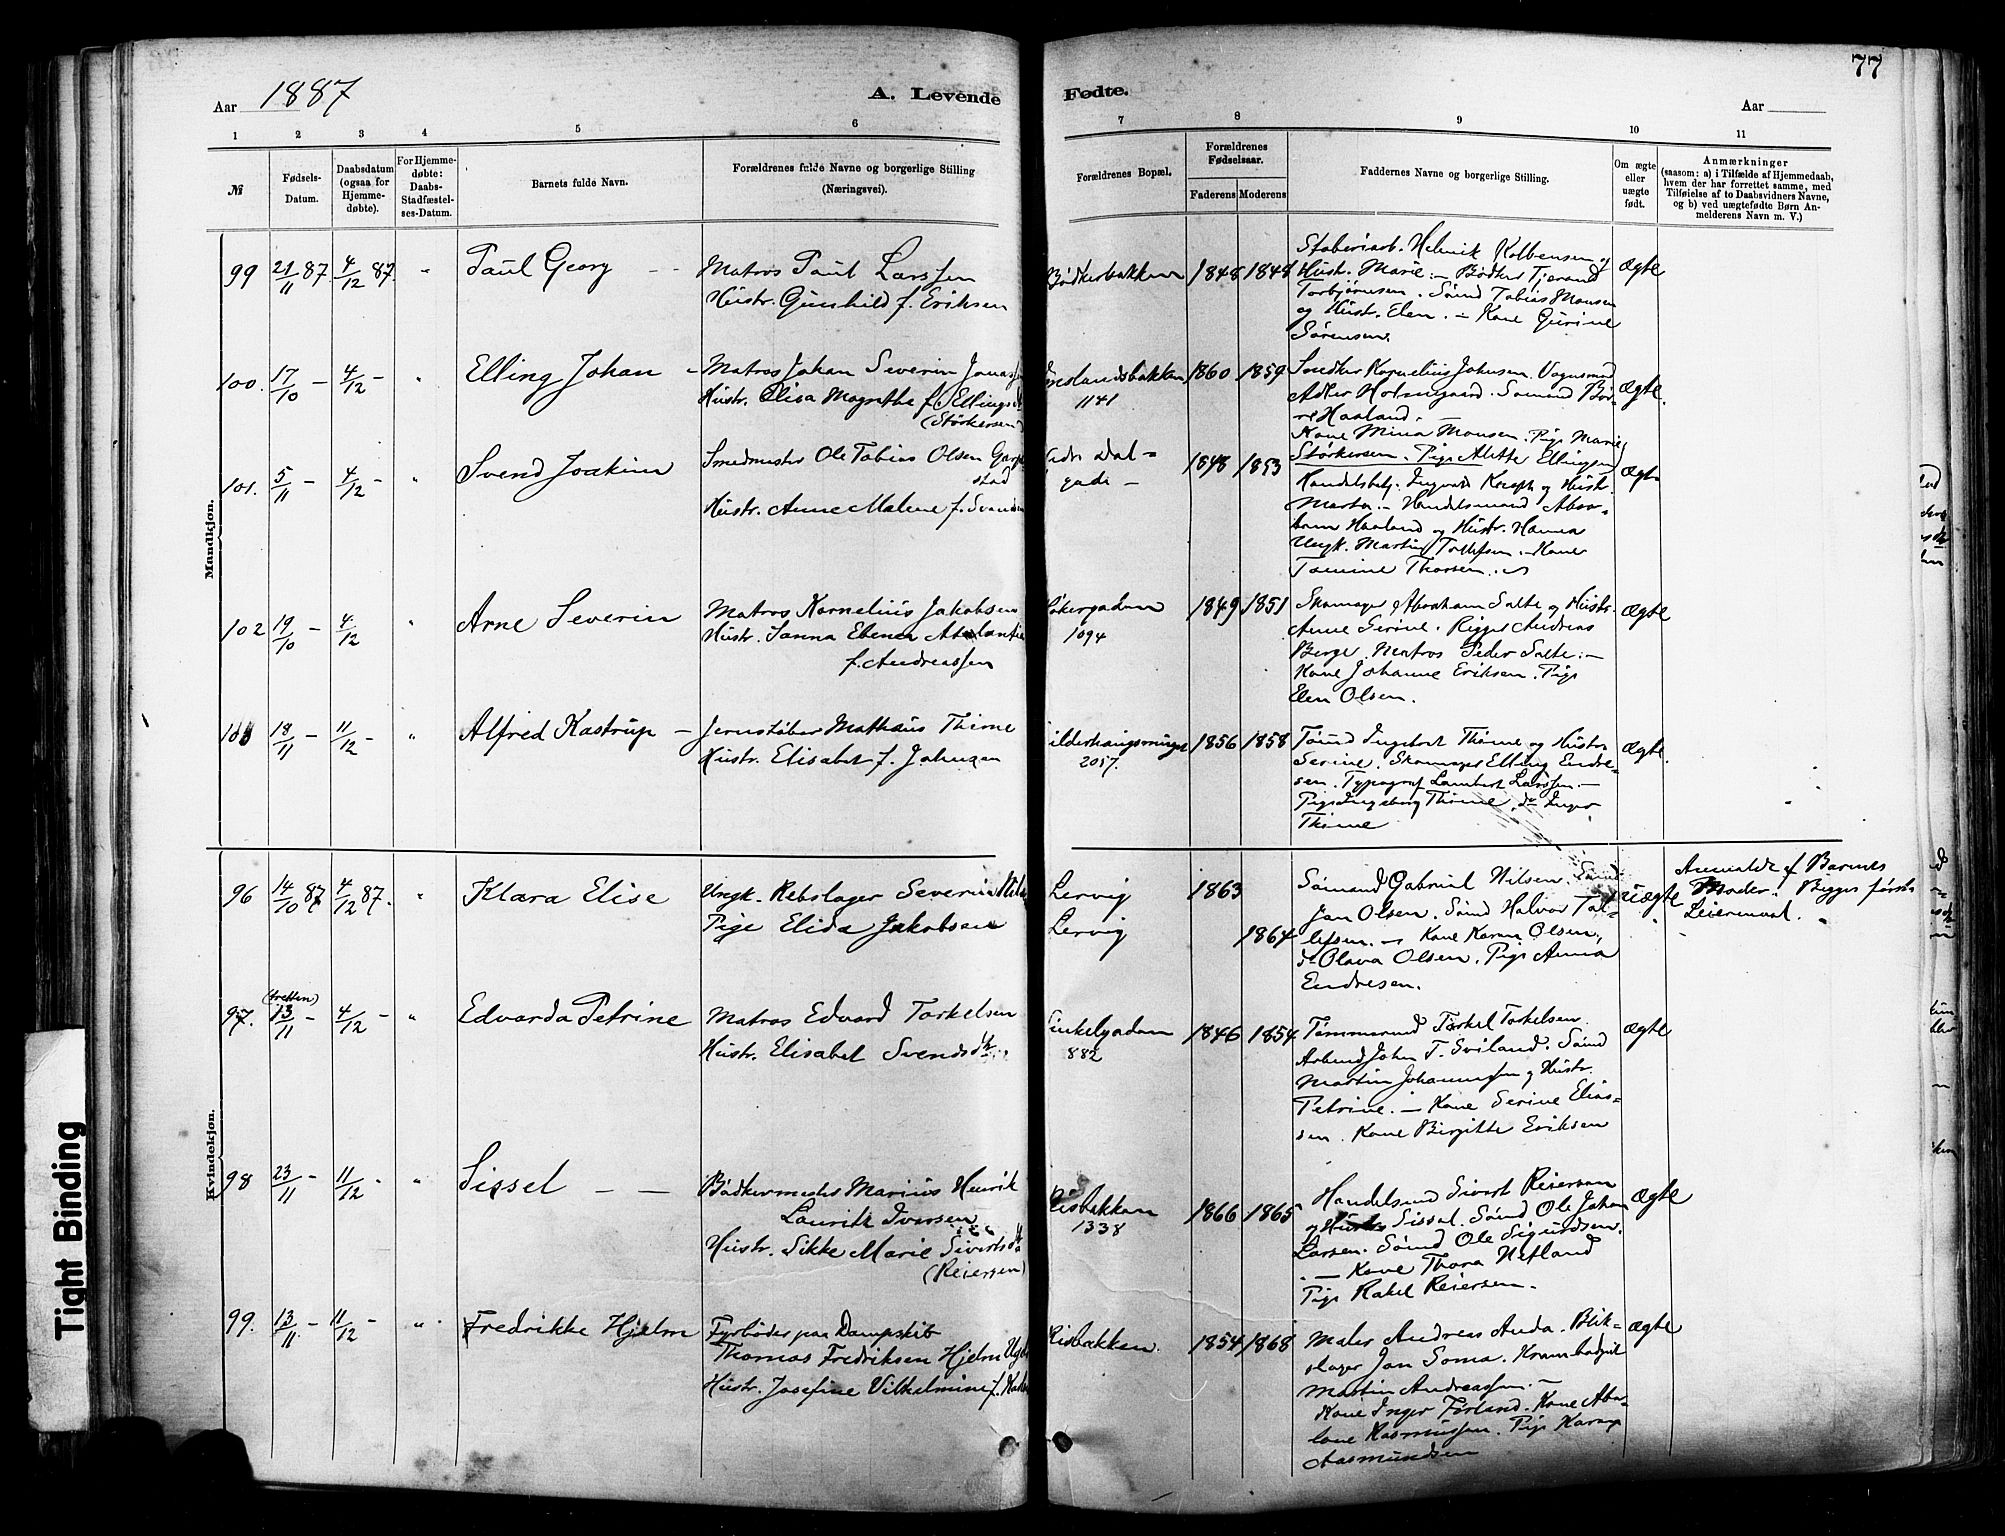 77
Aar 1887
A. Levende
Fødte.
Aar
1 2 3 4 5 6 7 8 9 10 11
№
Fødsels-
Datum.
Daabsdatum
(ogsaa for
Hjemme-
døbte).
For Hjemme-
døbte:
Daabs-
Stadfæstel-
ses-Datum.
Barnets fulde Navn.
Forældrenes fulde Navne og borgerlige Stilling
(Næringsvei).
Forældrenes Bopæl.
Forældrenes
Fødselsaar.
Faderens Moderens
Faddernes Navne og borgerlige Stilling.
Om ægte
eller
uægte
født.
Anmærkninger
(saasom: a) i Tilfælde af Hjemmedaab,
hvem der har forrettet samme, med
Tilføielse af to Daabsvidners Navne,
og b) ved uægtefødte Børn An-
melderens Navn m. V.)
Mandkjøn.
99 21/11 87. 4/12 87. " Paul Georg - -
Matros Paul Larssen
Hustr. Gunhild f. Eriksen
Bødkerbakken 1848 1848
Helmik Kolbensen og
Hustr. Marie. - Bødker Tjerand
Torbjørnsen. Sømd Tobias Monsen
og Hustr. Elen. - Kone Gurine
Sørensen.
Ægte
100. 17/10 - 4/12 - " Elling Johan -
Matros Johan Severin Jonas
Hustr. Elisa Magrethe f. Ellings
(Størkersen)
1141
1860 1859
Snedker Kornelius Johnsen. Vognmd
Adler Holmgaard. Sømand Bør-
re Haaland. -
Kone Mina Monsen. Pige Marie
Størkersen. Pige Alette Ellingsen
Ægte.
101. 5/11 - 4/12 - " Svend Joakim
Smedmester Ole Tobias Olsen
stad
Hustr. Anne Malene f. Svends
Dal-
gade -
1848 1853
Handelsbetj. Ingvald og Hustr.
Marta. - Handelsmand Abra-
ham Haaland og Hustr. Hanna
Ungk. Martin Tollefsen. - Kone
Tomine Thorsen.
Ægte
102 19/10 - 4/12 " Arne Severin
Matros Kornelius Jakobsen
Hustr. Janna Elena
f. Andreassen
1094
1849 1851
Skomager Abraham Salte og Hustr.
Anne Serine. Rigger Andreas
Berge. Matros Peder Salte. -
Kone Johanne Eriksen. Pige
Elen Olsen.
Ægte
103 18/11 - 11/12 - " Alfred Kastrup -
Jernstøber Mathæus Thime
Hustr. Elisabet f. Johnsen
2057.
1856 1858
Tømd Ingebret Thime og Hustr
Serine. Skomager Elling Endre-
sen. Typograf Lambert Larssen. -
Pige Ingeborg Thime, do Inger
Thime
Ægte.
Kvindekjøn.
96 14/10 87 4/12 87. " Klara Elise
Ungk. Rebslager Severin
Pige Elida Jakobsen
Lervig
Lervig
1863
1864
Sømand Gabriel Nilsen. Sømd
Jan Olsen. Sømd Halvor Tol-
lefsen. - Kone Karen Olsen,
do Olava Olsen. Pige Anna
Endresen.
Uægte
Anmeldt af Barnets
Moder. Begges første
Leiermaal.
97. (tretten) 13/11 - 4/12 - " Edvarda Petrine
Matros Edvard Torkelsen
Hustr. Elisabet Svendsdtr.
882
1846 1854
Tømmermd Torkel Torkelsen
Arbmd John T. Sviland. Sømd
Martin Johannessen og Hustr.
Petrine. - Kone Serine Elias-
sen. Kone Birgitte Eriksen
Ægte
98 23/11 - 11/12 - " Sissel - -
Bødkermester Marius Henrik
Lauritz Iversen
Hustr. Sikke Marie Siverts
(Reiersen)
Risbakken
1338
1866 1865
Handelsmd Sivert Reiersen
og Hustr Sissel. Sømd Ole Johan
Larsen. Sømd Ole Sigurdsen.
- Kone Thora Hetland
Pige Rakel Reiersen.
Ægte
99. 13/11 - 11/12 - " Fredrikke Hjelm
Fyrbøder paa Dampskib
Thomas Fredriksen Hjelm
Hustr. Josefine Vilhelmine f.
Risbakken.
1854 1868
Maler Andreas Anda. Blik-
slager Jan Soma.
Martin Andreassen. -
Kone Inger Førland. Kone Aba-
lone Rasmussen. Pige Karen
Aasmundsen
Ægte
Tight Binding